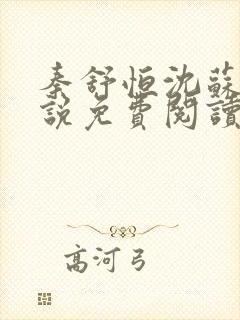 秦舒恒沈蘇
說免費閱讀
高河弓